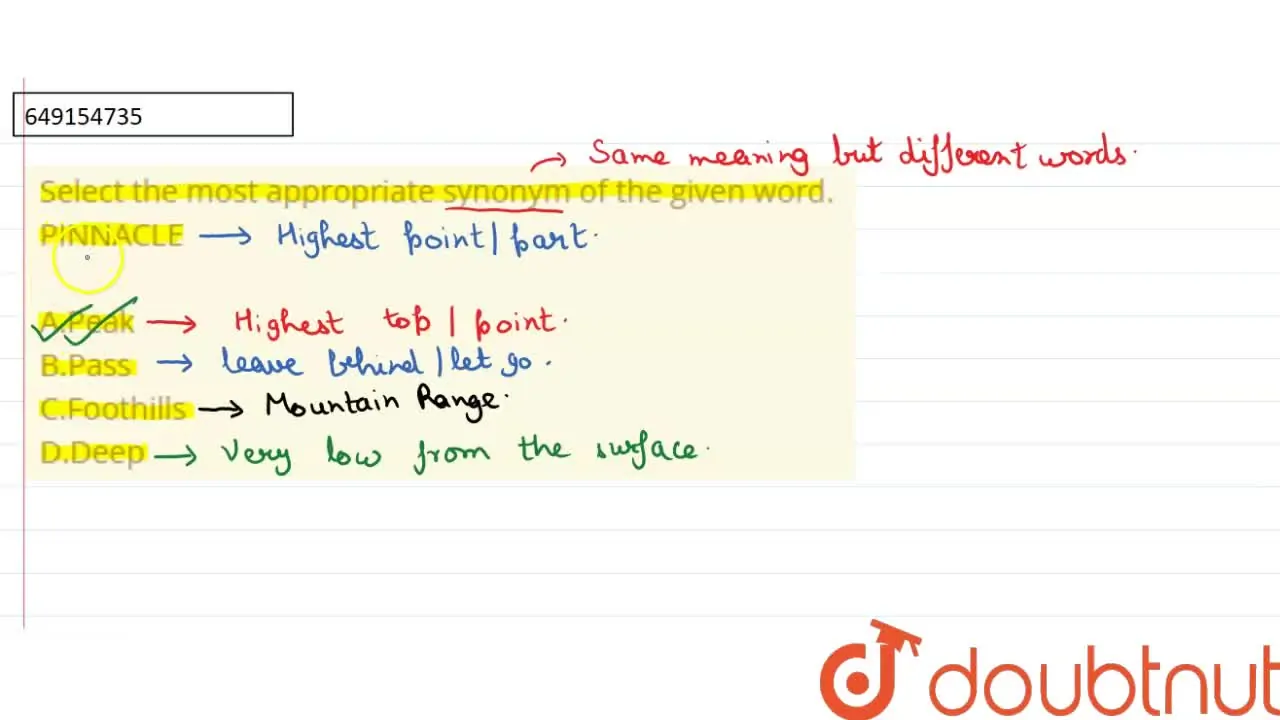 649154735
Same meaning but different words.
Select the most appropriate synonym of the given word.
PINNACLE → Highest point | part.
A.Peak → Highest top | point.
B.Pass → leave behind | let go.
C.Foothills → Mountain Range.
D.Deep → Very low from the surface.
doubtnut